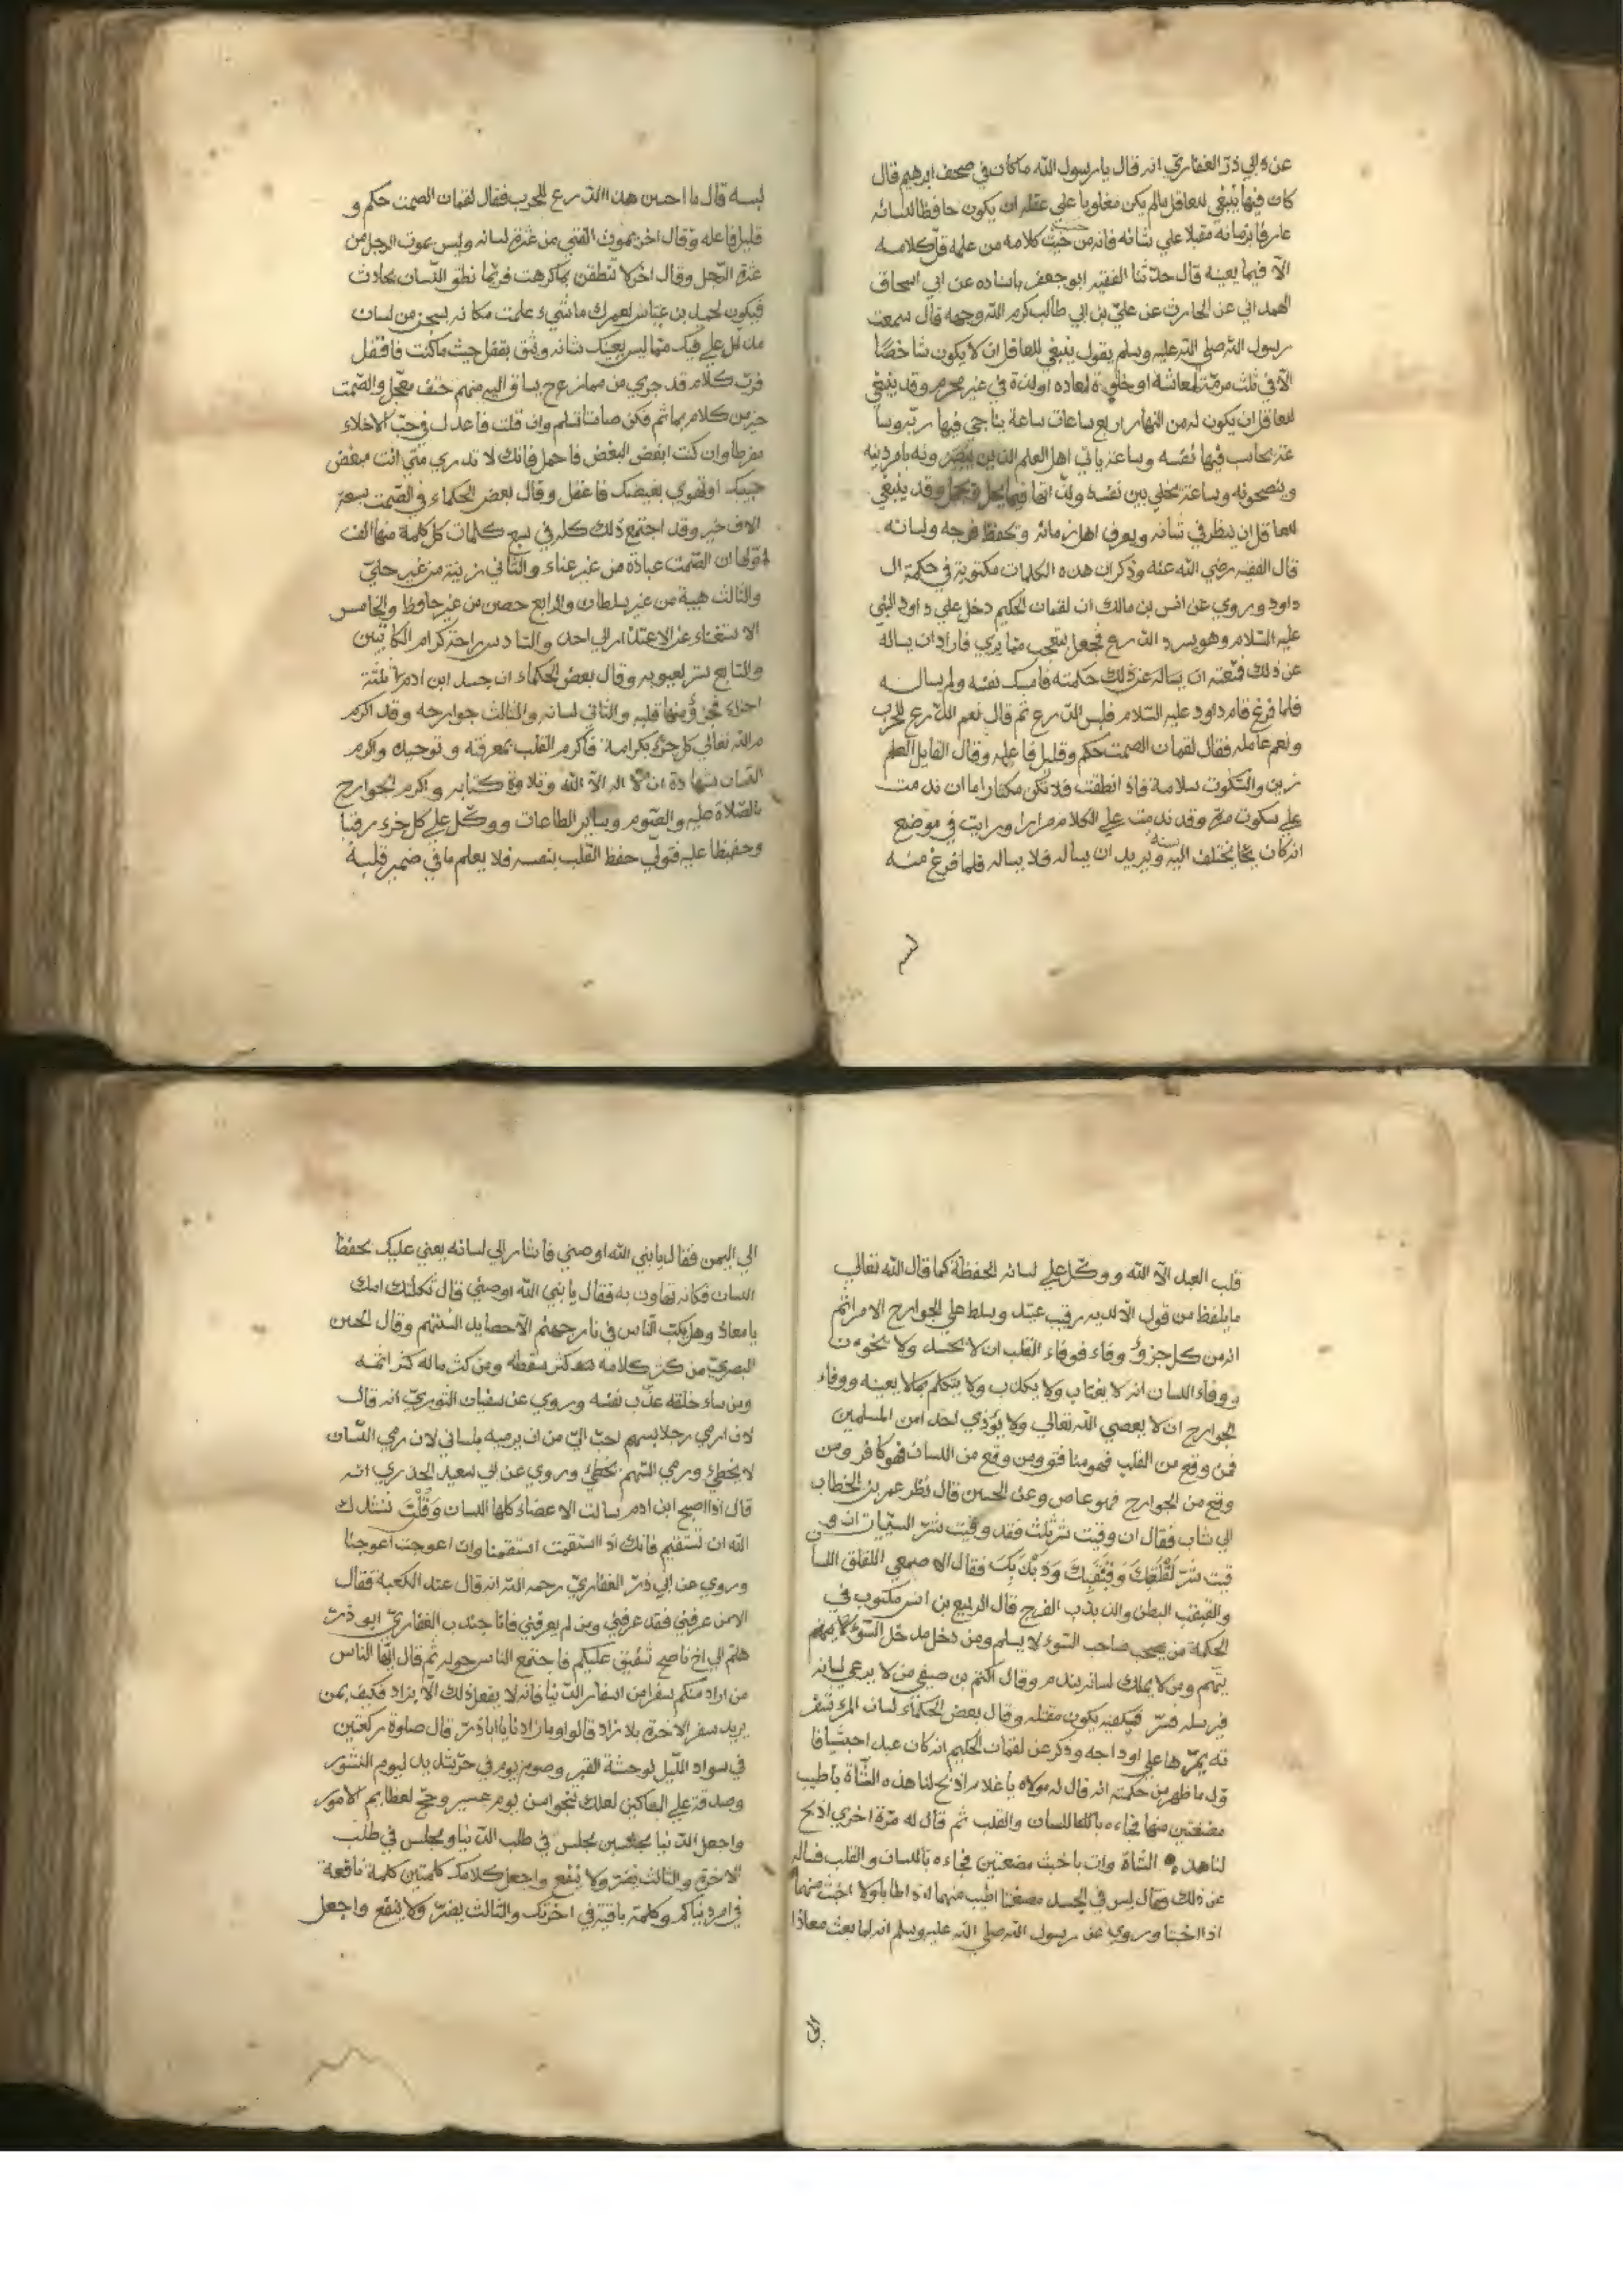 عن ابي ذر الغفاري انه قال يا رسول الله ما كان في صحف ابرهيم قال
كان فيها ينبغي للعاقل مالم يكن مغلوبا علي عقله ان يكون حافظا للسانه
عارفا بزمانه مقبلا علي شانه فانه من حسب كلامه من عمله قل كلامه
الا فيما يعينه قال حدثنا الفقيه ابو جعفر باسناده عن ابي اسحاق
الهمداني عن الحارث عن علي بن ابي طالب كرم الله وجهه قال سمعت
رسول الله صلي الله عليه وسلم يقول ينبغي للعاقل ان لا يكون شاخصا
الا في ثلث مرمة لمعاشه او خلوة لمعاده او لذة في غير محرم وقد ينبغي
للعاقل ان يكون له من النهار اربع ساعات ساعة يناجي فيها ربه وسا
عة يحاسب فيها نفسه وساعة ياتي اهل العلم الذين يبصرونه بامر دينه
وينصحونه وساعة يخلي بين نفسه ولذاتها فيما يحل ويجمل وقد ينبغي
للعاقل ان ينظر في شانه ويعرف اهل زمانه ويحفظ فرجه ولسانه
قال الفقيه رضي الله عنه وذكر ان هذه الكلمات مكتوبة في حكمة ال
داود وروي عن انس بن مالك ان لقمان الحكيم دخل علي داود النبي
عليه السلام وهو يسرد الدرع فجعل يتعجب مما يري فاراد ان يساله
عن ذلك فمنعته ان يساله عن ذلك حكمته فامسك نفسه ولم يساله
فلما فرغ قام داود عليه السلام فلبس الدرع ثم قال نعم الدرع للحرب
ونعم عامله فقال لقمان الصمت حكم وقليل فاعله وقال القايل العلم
زين والسكوت سلامة فاذا نطقت فلا تكن مكثارا ما ان ندمت
علي سكوت مرة وقد ندمت علي الكلام مرارا ورايت في موضع
انه كان يختلف اليه سنة ويريد ان يساله فلا يساله فلما فرغ منه
لبسه
لبسه قال ما احسن هذا الدرع للحرب فقال لقمان الصمت حكم و
قليل فاعله وقال اخر يموت الفتي من عثرة لسانه وليس يموت الرجل من
عثرة الرجل وقال اخر لا تنطقن بما كرهت فربما نطق اللسان بحادث
فيكون لحميد بن عباس لعمرك ما شيء علمت مكانه بسجن من لسان
مذلل علي فيك مما ليس يعنيك شانه وثق بقفل حيث ما كنت فاقفل
فرب كلام قد جري من ممازح يساق اليه منهم حتف معجل والصمت
خير من كلام بماثم فكن صامتا تسلم وان قلت فاعدل في حب الاخلاء
مفرطا وان كنت ابغض البغض فاحمل فانك لا تدري متي انت مبغض
حبيبك او تهوي بغيضك فاعقل وقال بعض الحكماء في الصمت سبعة
الاف خير وقد اجتمع ذلك كله في سبع كلمات كل كلمة منها الف
اولها ان الصمت عبادة من غير عناء والثاني زينة من غير حلي
والثالث هيبة من غير سلطان والرابع حصن من غير حافظ والخامس
الاستغناء عن الاعتذار الي احد والسادس راحة كرام الكاتبين
والسابع ستر لعيوبه وقال بعض الحكماء ان جسد ابن ادم ثلثة
اجزاء فجزؤ منها قلبه والثاني لسانه والثالث جوارحه وقد اكرم
الله تعالي كل جزء بكرامة فاكرم القلب بمعرفته وتوحيده واكرم
اللسان بشهادة ان لا اله الا الله وتلاوة كتابه واكرم الجوارح
بالصلاة والصوم وساير الطاعات ووكل علي كل جزء رقيبا
وحفيظا عليه فتولي حفظ القلب بنفسه فلا يعلم ما في ضمير قلبه
قلب العبد الا الله ووكل علي لسانه الحفظة كما قال الله تعالي
ما يلفظ من قول الا لديه رقيب عتيد وسلط علي الجوارح الامر ثم
انه من كل جزؤ وفاء فوفاء القلب ان لا يحسد ولا يخون
ووفاء اللسان انه لا يغتاب ولا يكذب ولا يتكلم بما لا يعينه ووفاء
الجوارح ان لا يعصي الله تعالي ولا يؤذي احدا من المسلمين
فمن وقع من القلب فهو منافق ومن وقع من اللسان فهو كافر ومن
وقع من الجوارح فهو عاص وعن الحسن قال نظر عمر بن الخطاب
الي شاب فقال ان وقيت شر ثلث فقد وقيت شر السيات ان و
قيت شر لقلقك وقبقبك وذبذبك فقال الاصمعي اللقلق اللسا
والقبقب البطن والذبذب الفرج قال الربيع بن انس مكتوب في
الحكمة من يصحب صاحب السوء لا يسلم ومن دخل مدخل السوء
يتهم ومن لا يملك لسانه يندم وقال اكثم بن صيفي من لا يرعي لسانه
تمر بها علي اوداجه وذكر عن لقمان الحكيم انه كان عبدا حبشيا فا
ول ما ظهر من حكمته انه قال له مولاه يا غلام اذبح لنا هذه الشاة باطيب
مضغتين منها فجاءه باللسان والقلب ثم قال له مرة اخري اذبح
لنا هذه الشاة وات باخبث مضغتين فجاءه باللسان والقلب فساله
عن ذلك وقال ليس في الجسد مضغتا اطيب منهما اذا طابا ولا اخبث منهما
اذا اخبثا وروي عن رسول الله صلي الله عليه وسلم انه لما بعث معاذا
الي
الي اليمن فقال يا نبي الله اوصني فاشار الي لسانه يعني عليك بحفظ
اللسان فكانه تهاون به فقال يا نبي الله اوصني قال ثكلتك امك
يا معاذ وهل يكب الناس في نار جهنم الا حصايد السنتهم وقال الحسن
البصري من كثر كلامه كثر سقطه ومن كثر ماله كثر اثمه
ومن ساء خلقه عذب نفسه وروي عن سفيان الثوري انه قال
لان ارمي رجلا بسهم احب الي من ان يرميه بلساني لان رمي اللسان
لا يخطئ ورمي السهم يخطئ وروي عن ابي سعيد الخدري انه
قال اذا اصبح ابن ادم سالت الاعضاء كلها اللسان وقلت ننشدك
الله ان تستقيم فانك اذا استقمت استقمنا وان اعوجت اعوجنا
وروي عن ابي ذر الغفاري رحمه الله انه قال عند الكعبة فقال
الا من عرفني فقد عرفني ومن لم يعرفني فانا جندب الغفاري ابو ذر
هلم الي اخ ناصح شفيق عليكم فاجتمع الناس حوله ثم قال ايها الناس
من اراد منكم سفرا من اسفار الدنيا فانه لا يفعل ذلك الا بزاد فكيف بمن
يريد سفر الاخرة بلا زاد قالوا وما زادنا يا ابا ذر قال صلوة ركعتين
في سواد الليل لوحشة القبر وصوم يوم في حر شديد ليوم النشور
وصدقة علي المساكين لعلك تنجوا من يوم عسير وحج لعظايم الامور
واجعل الدنيا مجلسين مجلس في طلب الدنيا ومجلس في طلب
الاخرة والثالث يضر ولا ينفع واجعل كلامك كلمتين كلمة نافعة
في امر دنياكم وكلمة باقية في اخرتك والثالث يضر ولا ينفع واجعل